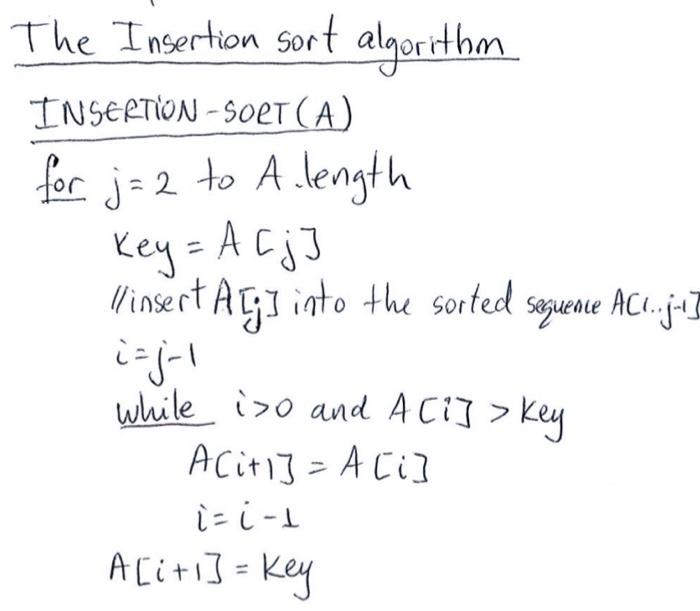 The Insertion sort algorithm
INSERTION-SORT(A)
for j=2 to A.length
Key = A[j]
//insert A[j] into the sorted sequence A[1..j-1]
i=j-1
while i>0 and A[i] > Key
A[i+1] = A[i]
i=i-1
A[i+1] = Key